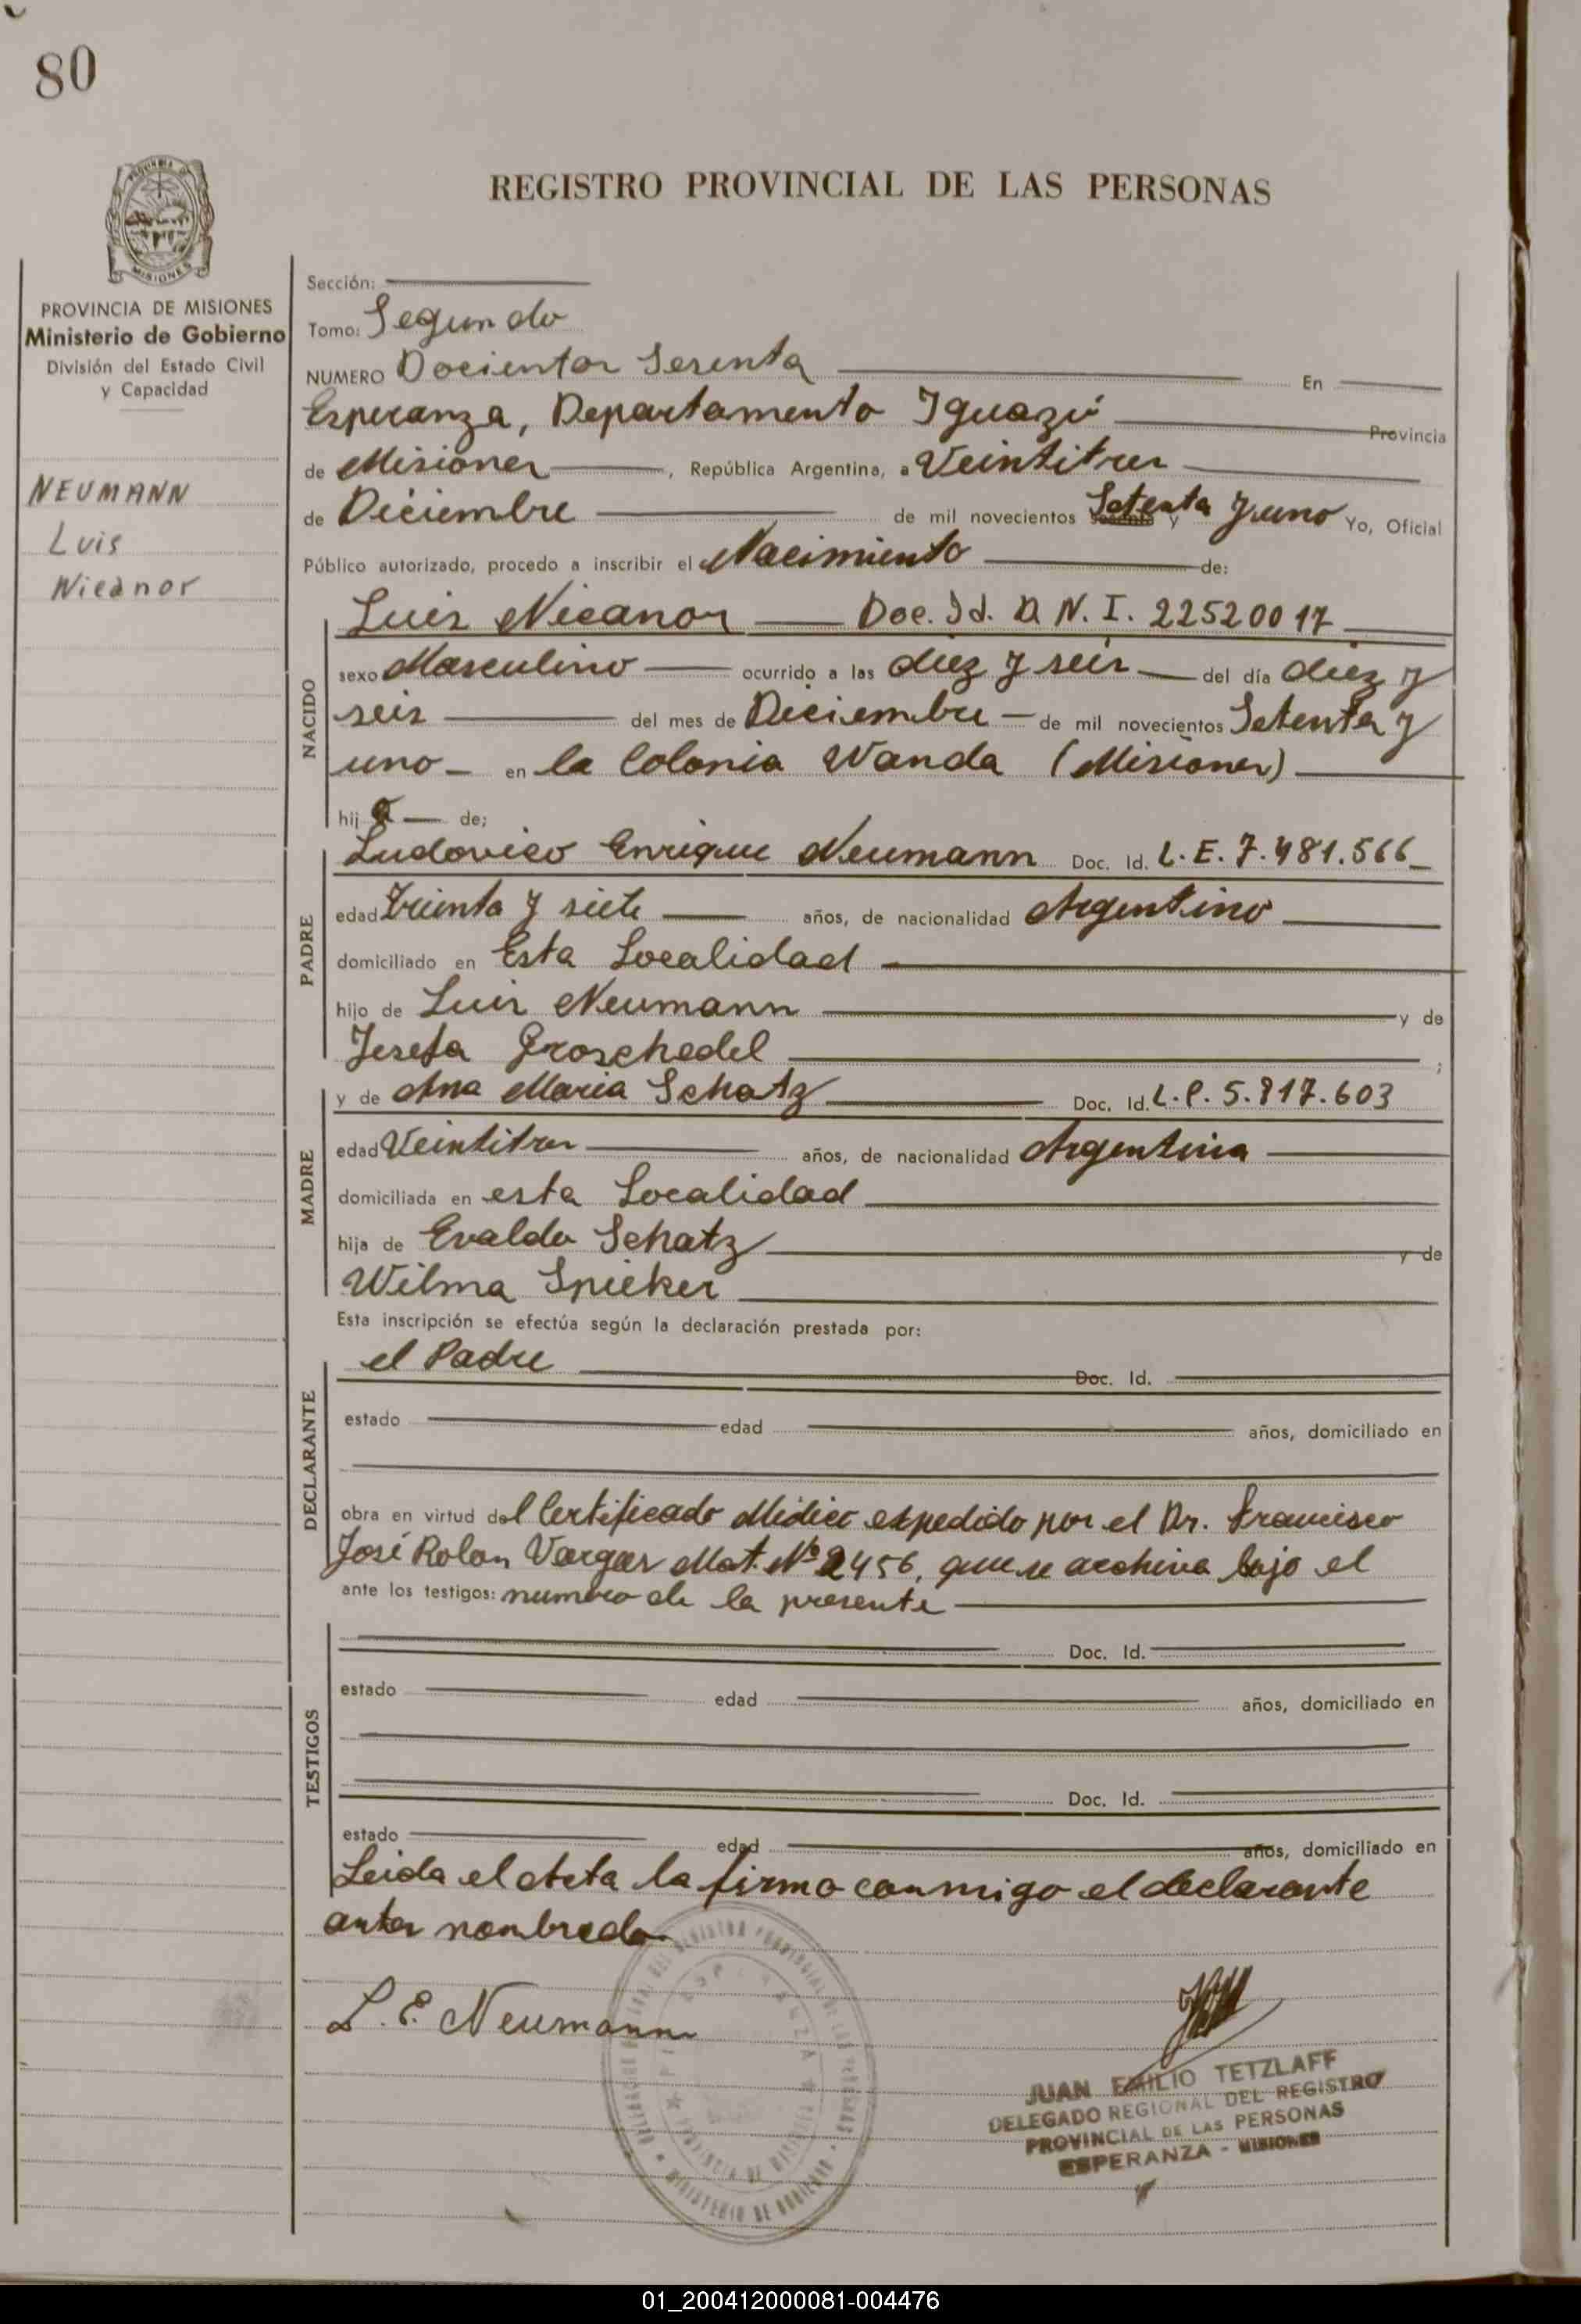 80
REGISTRO PROVINCIAL DE LAS PERSONAS
MISIONES
PROVINCIA DE MISIONES
Ministerio de Gobierno
División del Estado Civil
y Capacidad
NEUMANN
Luis
Nicanor
Sección:
Tomo: Segundo
NUMERO Docientos Sesenta En
Esperanza, Departamento Iguazú Provincia
de Misiones, República Argentina, a Veintitres
de Diciembre de mil novecientos sesenta y Setenta y uno Yo, Oficial
Público autorizado, procedo a inscribir el Nacimiento de:
NACIDO
Luis Nicanor Doc. Id. D N. I. 22520017
sexo Masculino ocurrido a las diez y seis del día diez y
seis del mes de Diciembre de mil novecientos Setenta y
uno en la Colonia Wanda (Misiones)
hijo de;
PADRE
Ludovico Enrique Neumann Doc. Id. L. E. 7.481.566
edad Treinta y siete años, de nacionalidad Argentino
domiciliado en Esta Localidad
hijo de Luis Neumann y de
Jesefa Groschedel ;
MADRE
y de Ana Maria Schatz Doc. Id. L. C. 5.817.603
edad Veintitres años, de nacionalidad Argentina
domiciliada en esta Localidad
hija de Evaldo Schatz y de
Wilma Spieker
Esta inscripción se efectúa según la declaración prestada por:
DECLARANTE
el Padre Doc. Id.
estado edad años, domiciliado en
obra en virtud del Certificado Médico expedido por el Dr. Francisco
José Rolon Vargas Mat. Nº 2456, que se archiva bajo el
ante los testigos: numero de la presente
TESTIGOS
Doc. Id.
estado edad años, domiciliado en
Doc. Id.
estado edad años, domiciliado en
Leida el Acta la firma conmigo el declarante
antes nombrado
L. E. Neumann
JUAN EMILIO TETZLAFF
DELEGADO REGIONAL DEL REGISTRO
PROVINCIAL DE LAS PERSONAS
ESPERANZA - MISIONES
01_200412000081-004476